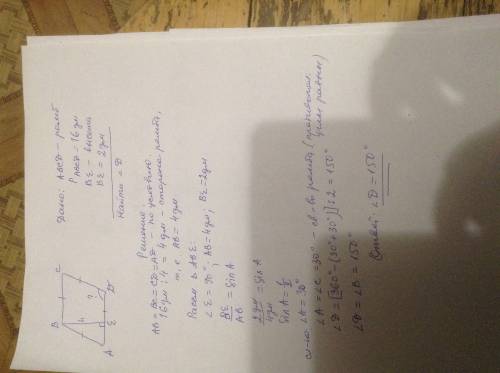 Дано: ABCD - ромб
P ABCD = 16 дм
BE - высота
BE = 2 дм
Найти ∠D
B
C
A
E
D
4
2
?
Решение
AB = BC = CD = AD - по условию
16 дм : 4 = 4 дм - сторона ромба,
т. е. AB = 4 дм
Рассм. Δ ABE:
∠E = 90°, AB = 4 дм, BE = 2 дм
BE/AB = sin A
2 дм/4 дм = sin A
sin A = 1/2
∠A = 30°
∠A = ∠C = 30° - св-во ромба (противополож. углы равны)
∠D = [360° - (30° + 30°)] : 2 = 150°
∠D = ∠B = 150°
Ответ: ∠D = 150°